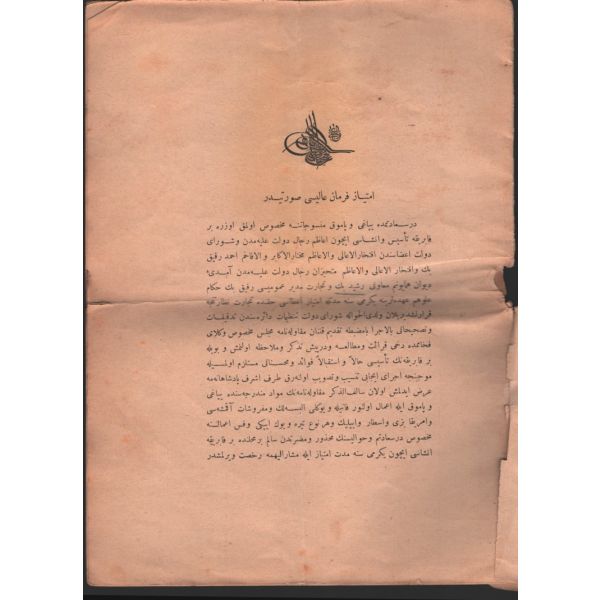 امتیاز فرمان عالیسی صورتیدر
درسعادتمده یپاغی و پاموق منسوجاتنه مخصوص اولمق اوزره بر
فابریقه تأسیس وانشاسی ایچون اعاظم رجال دولت علیه‌مدن وشورای
دولت اعضاسندن افتخارالاعالی والاعاظم مختارالاکابر والافاخم احمد رفیق
بك وافتخار الاعالی والاعاظم متحیزان رجال دولت علیه‌مدن آمدیء
دیوان همایونم معاونی رشید بك و تجارت مدیر عمومیسی رفیق بك
عهده‌لرینه یکرمی سنه مدتله امتیاز اعطاسی حقنده تجارت نظارتنجه
قرارلشدیریلان ولدی‌الحواله شورای دولت تنظیمات دائره‌سندن تدقیقات
وتصحیحاتی بالاجرا بامضبطه تقدیم قلنان مقاوله‌نامه مجلس مخصوص وکلای
فخاممده دخی قرائت ومطالعه و تذکر وملاحظه اولنمش و بویله
بر فابریقه‌نك تأسیسی حالاً و استقبالاً فوائد ومحسناتی مستلزم اولمسیله
موجبنجه اجرای ایجابی تنسیب وتصویب اوله‌رق طرف اشرف پادشاهانه‌مه
عرض ایدلمش اولان سالف‌الذکر مقاوله‌نامه‌نك مواد مندرجه‌سنده یپاغی
و پاموق ایله اعمال اولنور فانیله و یوکلی البسه‌لك ومفروشات آقمشه‌سی
وامریقا بزی واسطار وایپلیك وهر نوع تیره و یوك ایپکی وفس اعمالنه
مخصوص درسعادتم وحوالیسنك محذور ومضرتدن سالم برمحلنده بر فابریقه
انشاسی ایچون یکرمی سنه مدت امتیاز ایله مشارالیهمه رخصت ویرلمشدر